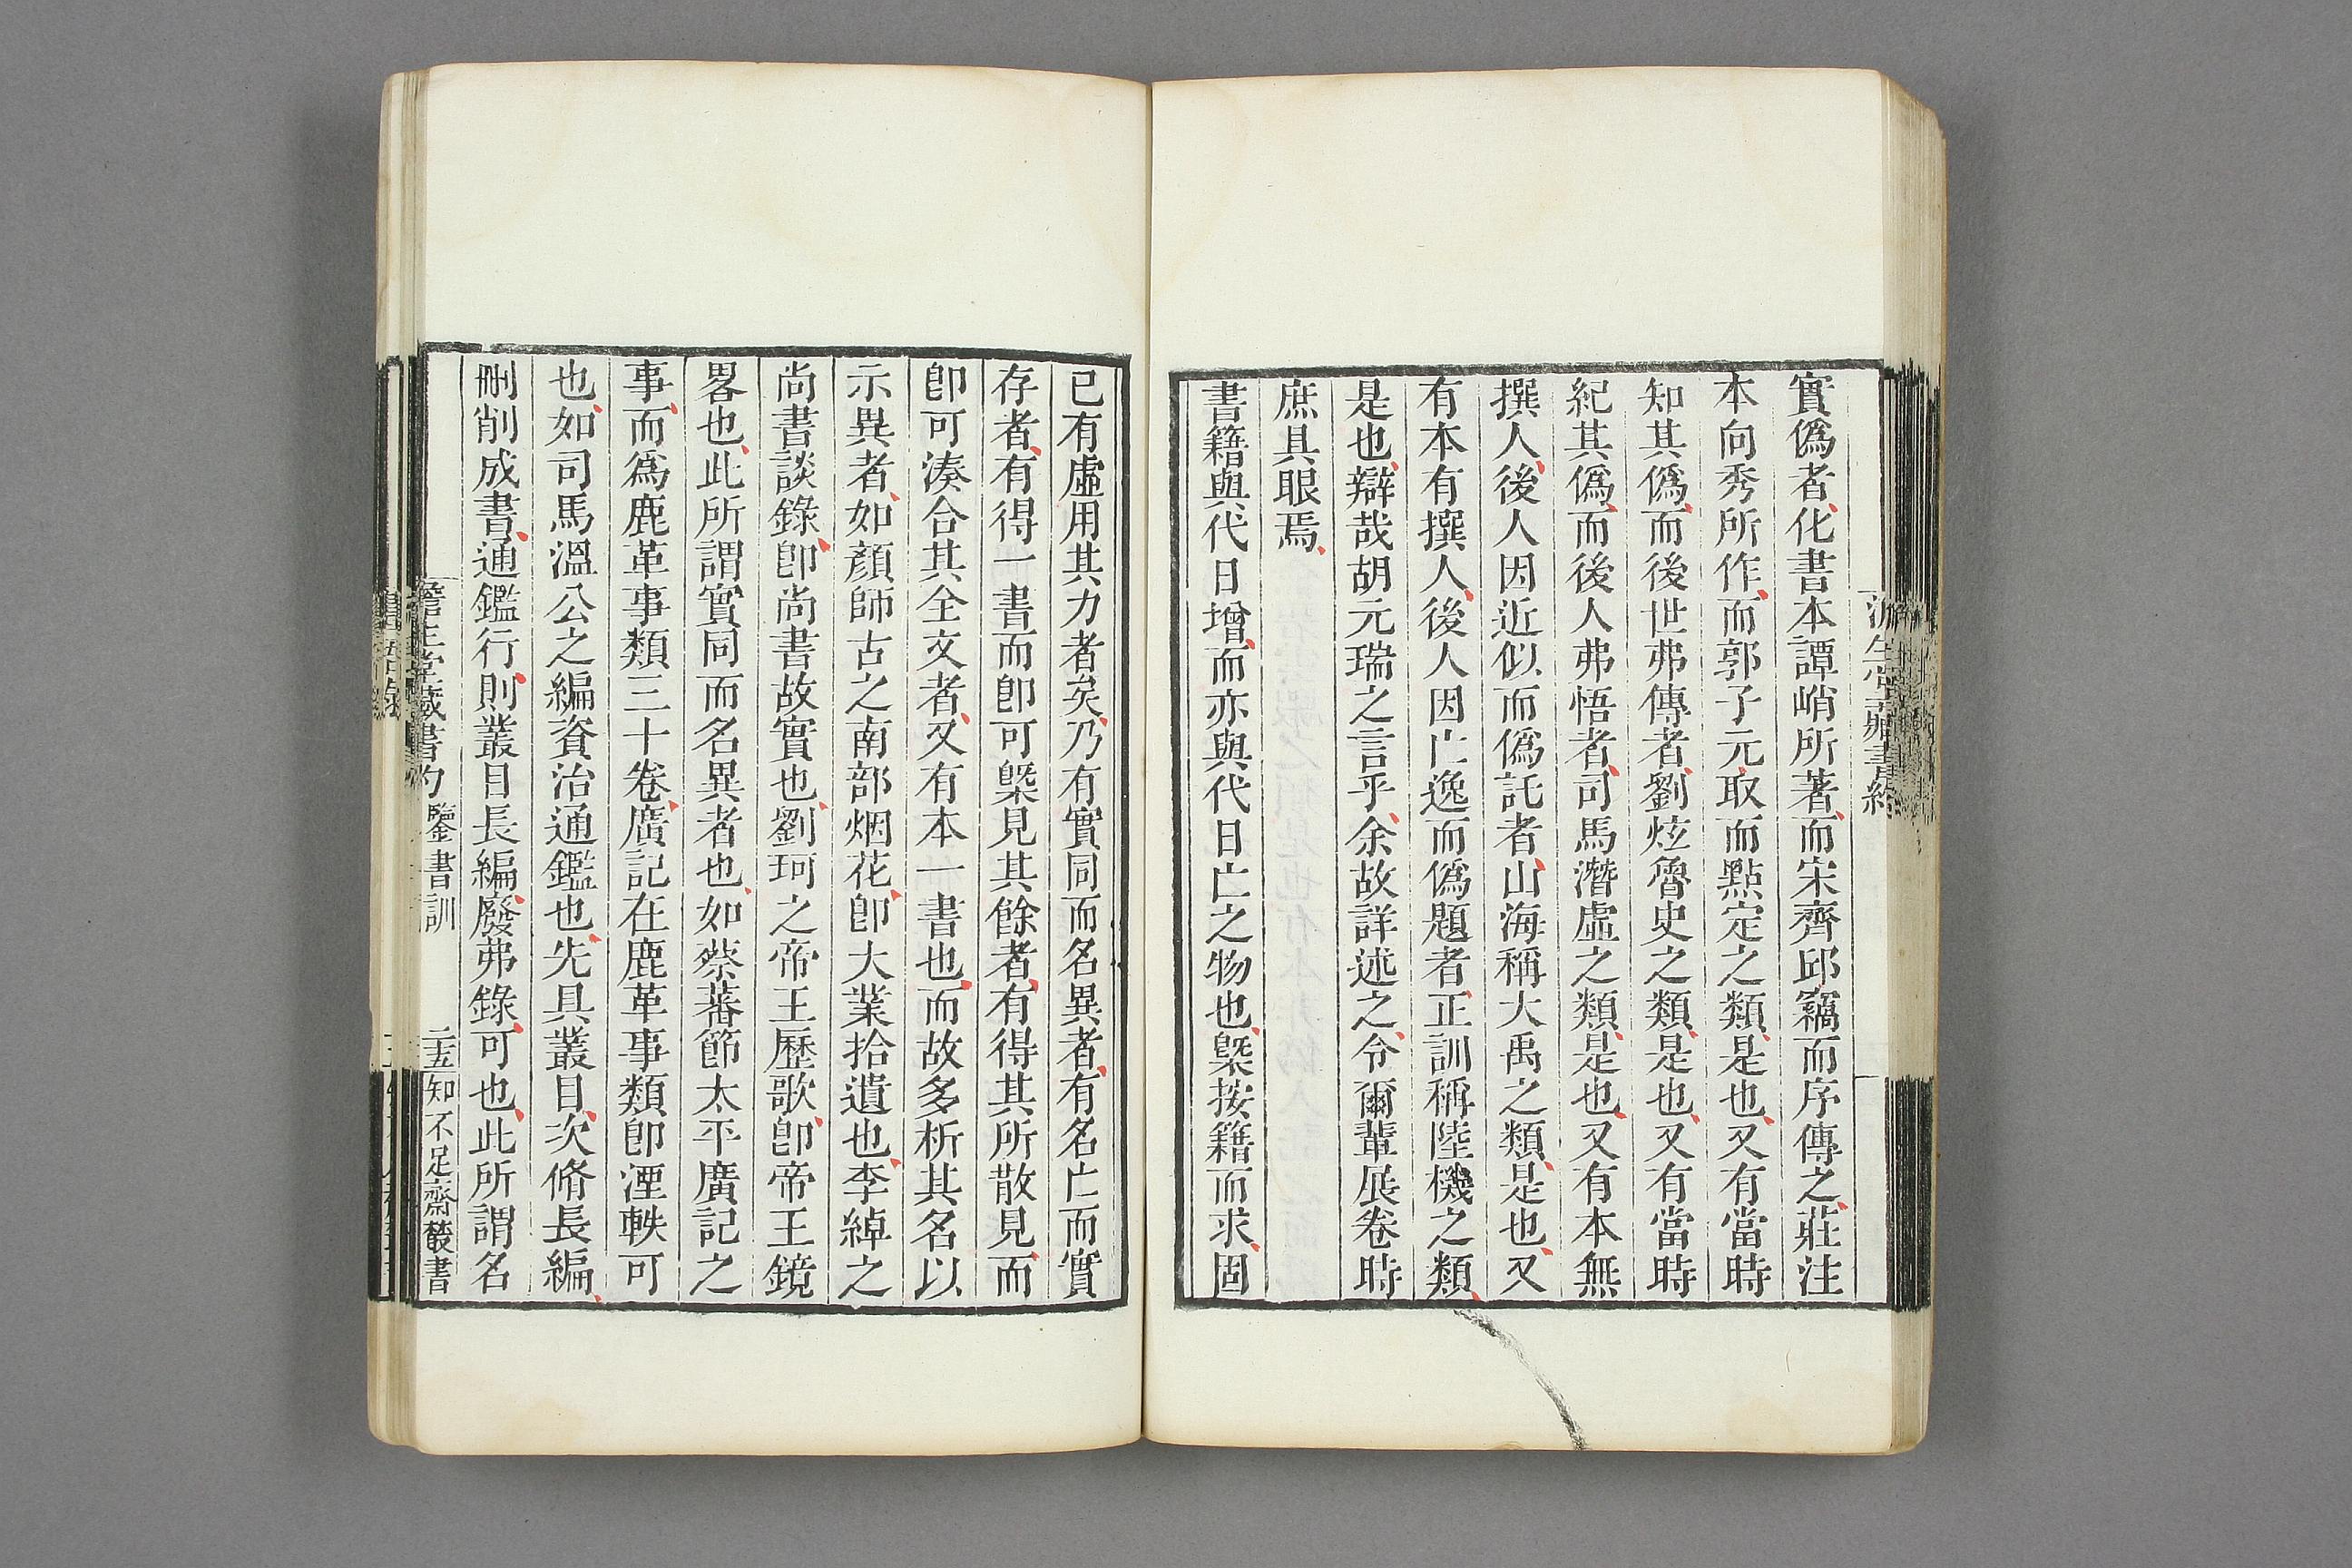 實僞者化書本譚峭所著而宋齊邱竊而序傳之莊注
本向秀所作而郭子元取而點定之類是也又有當時
知其僞而後世弗傳者劉炫魯史之類是也又有當時
紀其僞而後人弗悟者司馬潛虛之類是也又有本無
撰人後人因近似而僞託者山海稱大禹之類是也又
有本有撰人後人因亡逸而僞題者正訓稱陸機之類
是也辯哉胡元瑞之言乎余故詳述之令爾輩展卷時
庶具眼焉
書籍與代日增而亦與代日亡之物也槩按籍而求固
已有虛用其力者矣乃有實同而名異者有名亡而實
存者有得一書而卽可槩見其餘者有得其所散見而
卽可湊合其全文者又有本一書也而故多析其名以
示異者如顏師古之南部烟花卽大業拾遺也李綽之
尚書談錄卽尚書故實也劉珂之帝王歷歌卽帝王鏡
畧也此所謂實同而名異者也如蔡蕃節太平廣記之
事而爲鹿革事類三十卷廣記在鹿革事類卽湮軼可
也如司馬溫公之編資治通鑑也先具叢目次脩長編
刪削成書通鑑行則叢目長編廢弗錄可也此所謂名
澹生堂藏書約 鑒書訓 二五 知不足齋叢書